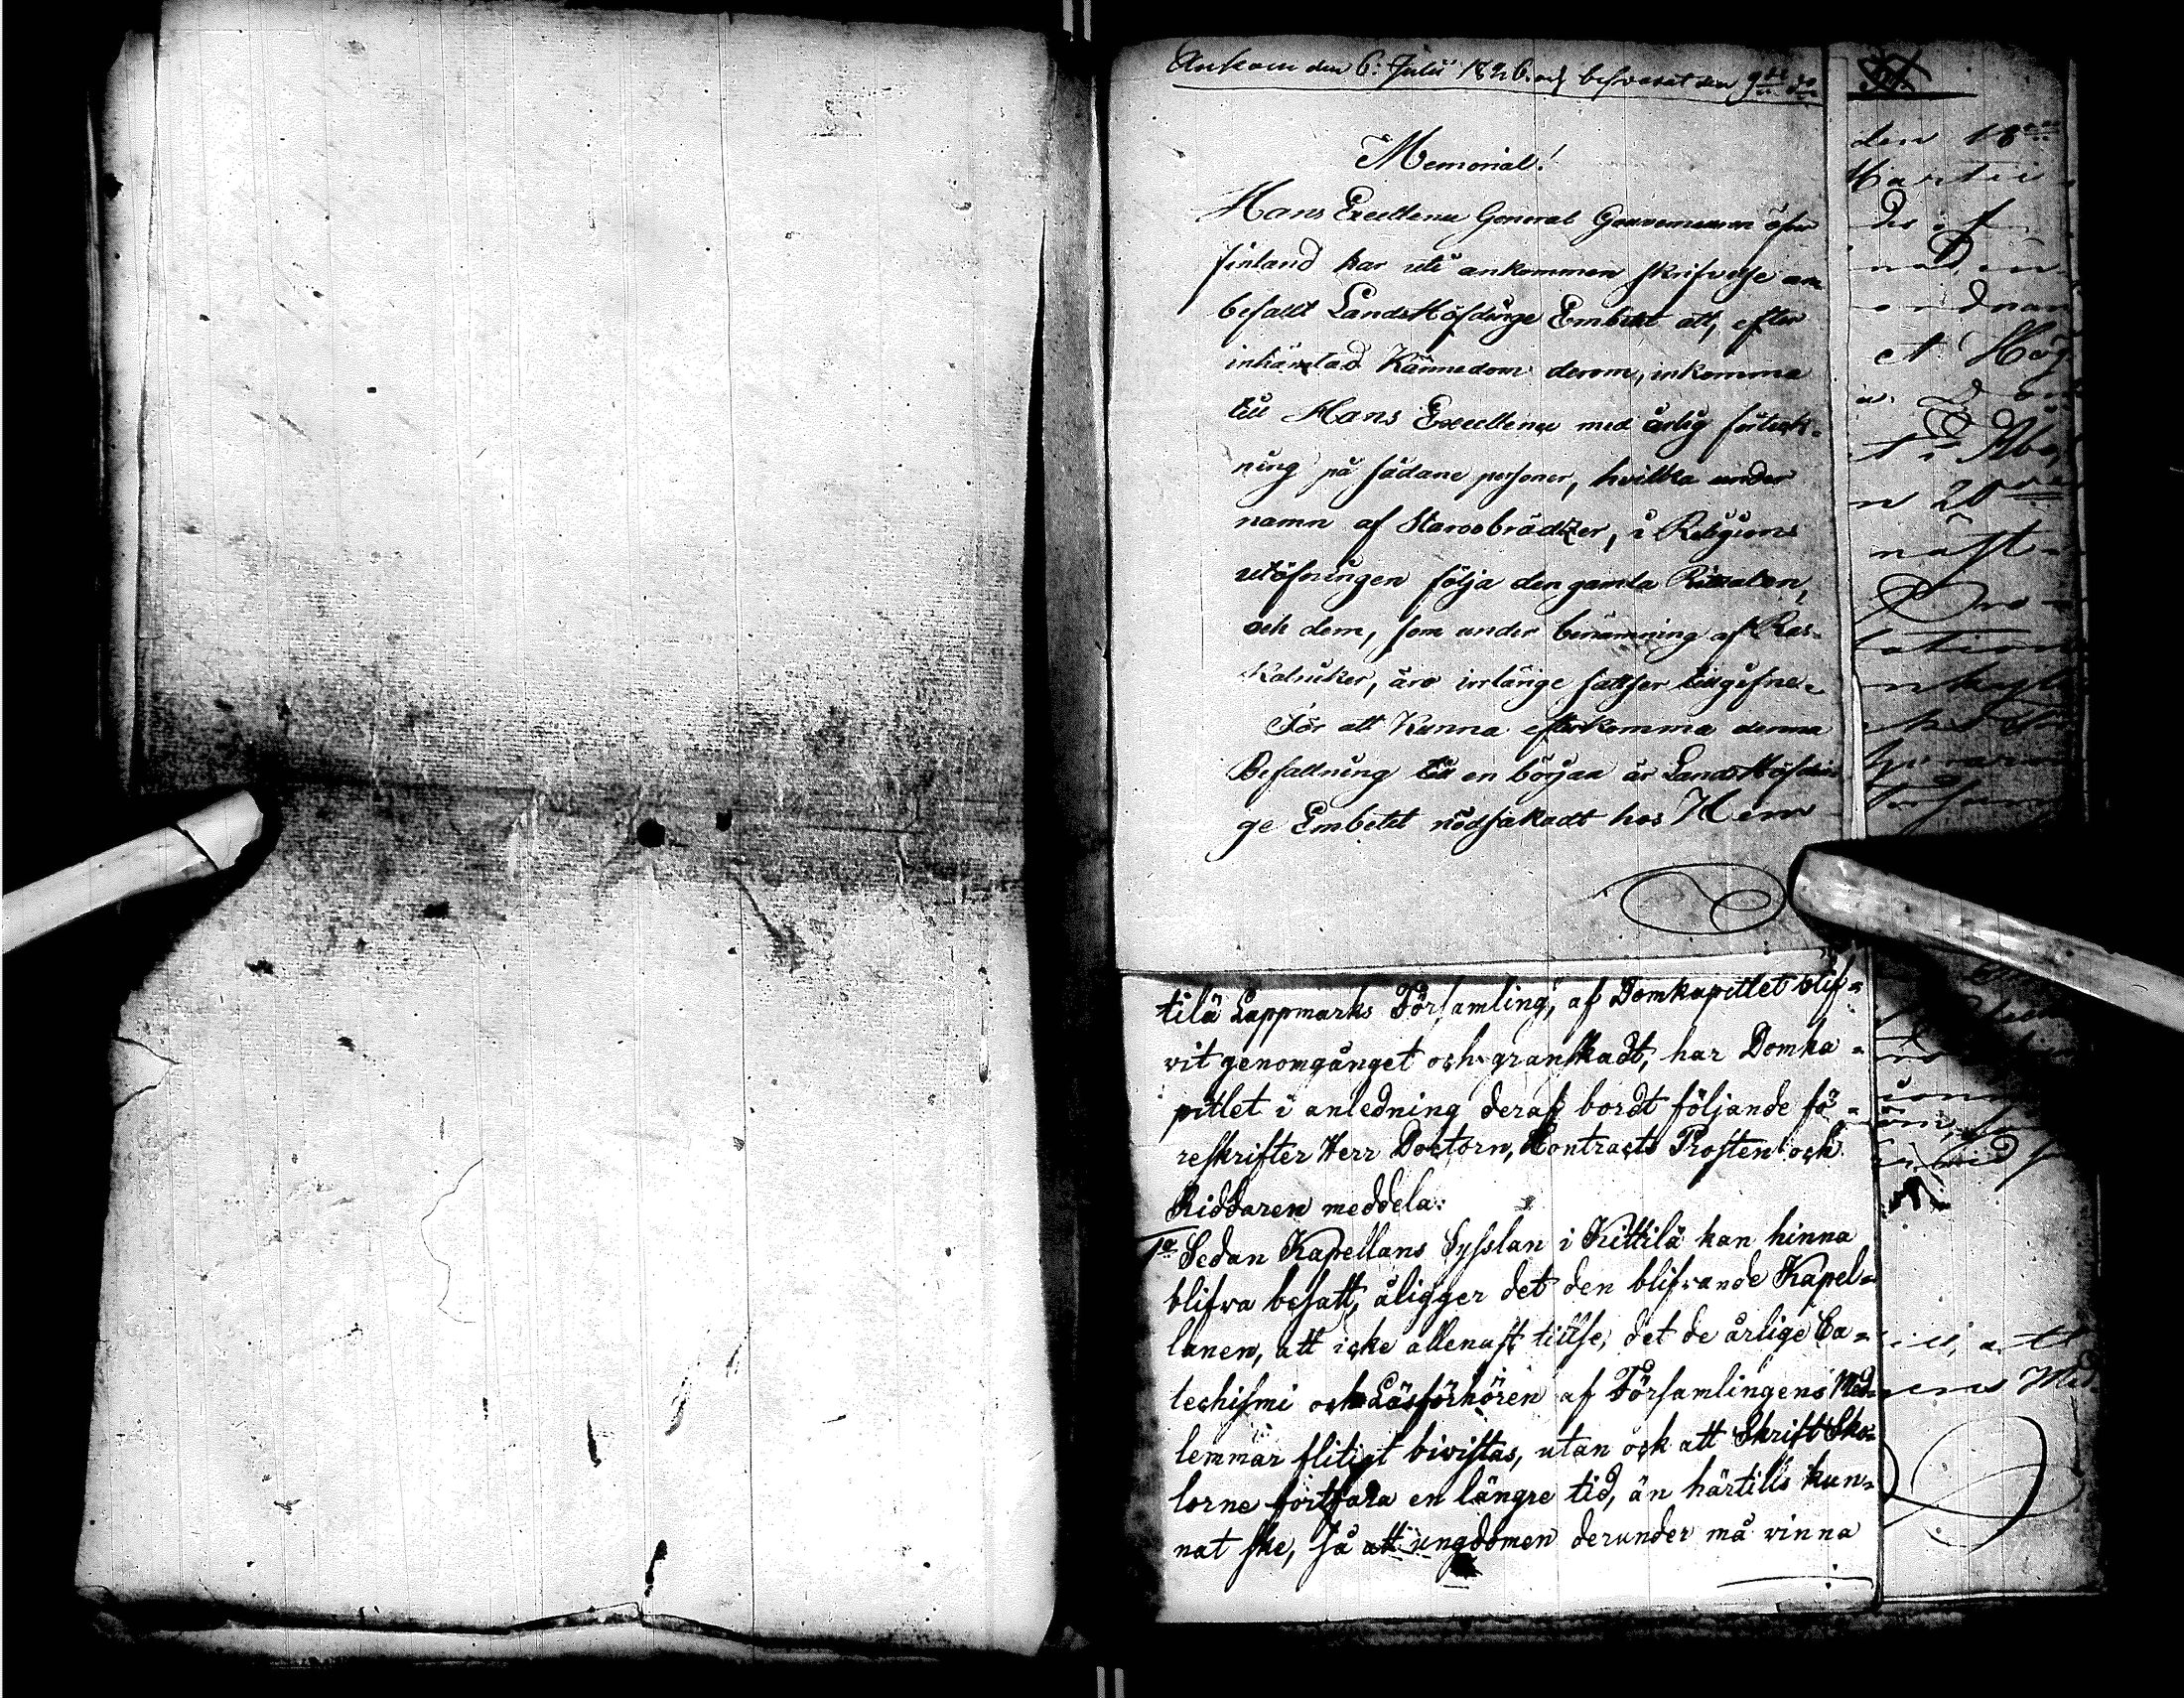 Ankom den 6: Julii 1826. och besvarat den 9de do
Memorial!
Hans Excellence General Gouverneuren öfver
Finland har uti ankommen skrifvelse an-
befallt LandsHöfdinge Embetet att, efter
inhämtad Kännedom derom, inkomma
till Hans Excellence med årlig förteck-
ning på sådane personer, hvilka under
namn af Staroobrädtzer, i Religions
utöfningen följa den gamla Ritualen,
och dem, som under benämning af Ras-
Kolniker, äro irrlärige satser tillgifne.
För att Kunna efterkomma denna
Befallning till en början är LandsHöfdin-
ge Embetet nödsakadt hos Herr
tilä Lappmarks Församling, af Domkapitlet blif-
vit genomgånget och granskadt, har Domka-
pitlet i anledning deraf bordt följande fö-
reskrifter Herr Doctorn, Contracts Prosten och
Riddaren meddela:
1o Sedan Kapellans Sysslan i Kittilä kan hinna
blifva besatt, åligger det den blifvande Kapel-
lanen, att icke allenast tillse, det de årlige Ca-
techismi och Läsförhören af Församlingens Med-
lemmar flitigt bivistas, utan ock att Skrift Sko-
lorne fortfara en längre tid, än härtills kun-
nat ske, så att ungdomen derunder må vinna
den 18de
Martii
ordnan
et Hög
Åbo
n 20de
näst
Pro-
lation